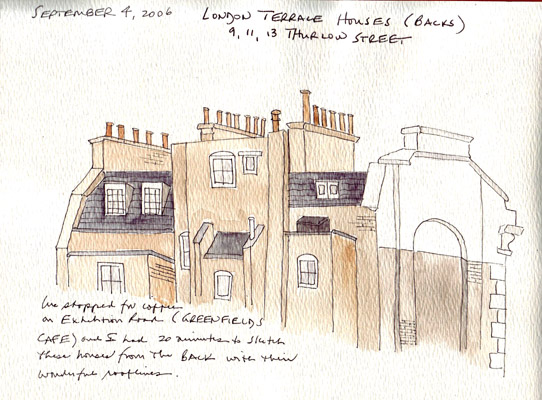 SEPTEMBER 4, 2006
LONDON TERRACE HOUSES (BACKS)
9, 11, 13 THURLOW STREET
We stopped for coffee
on Exhibition Road (GREENFIELDS
CAFE) and I had 20 minutes to sketch
these houses from the BACK with their
wonderful rooflines.